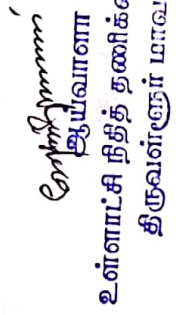 ஆய்வாளா
உள்ளாட்சி நிதித் தணிக்கை
திருவள்ளூர் மாவ